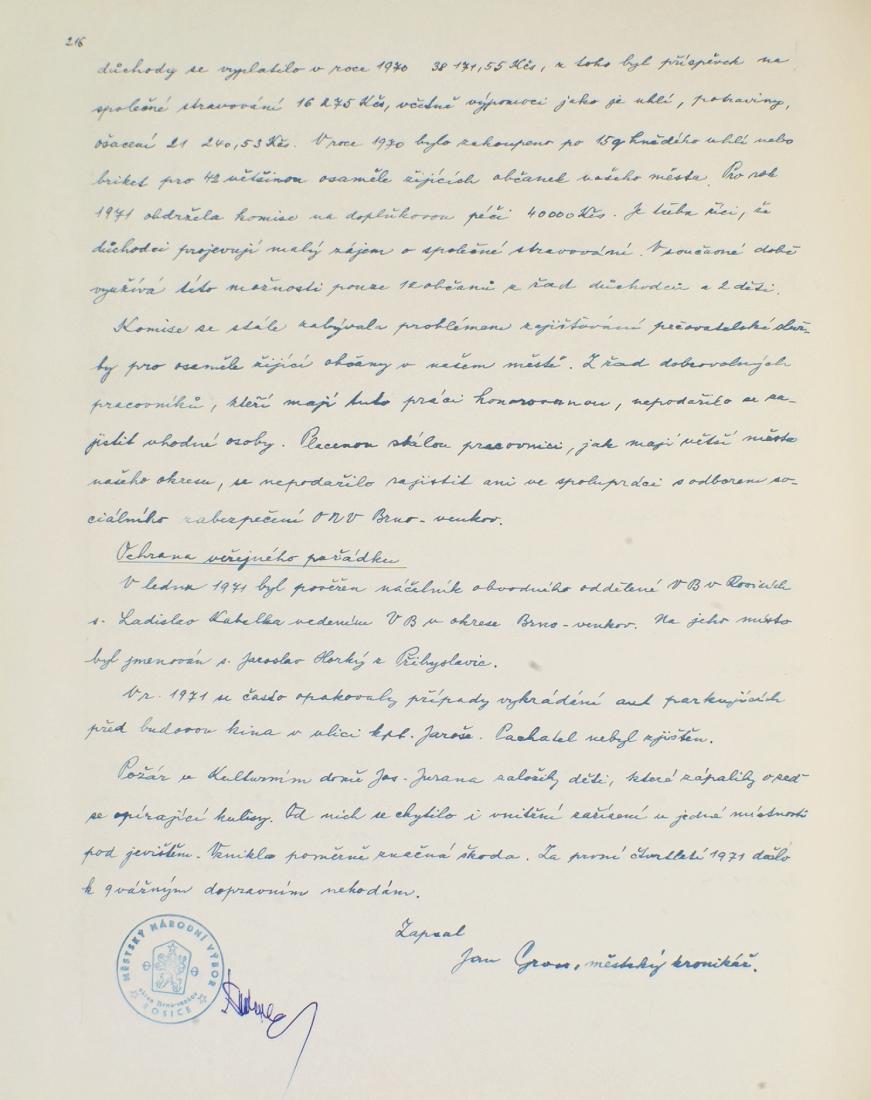 216
důchody se vyplatilo v roce 1970 38 171,55 Kčs, z toho byl příspěvek na
společné stravování 16 275 Kčs, včetně výpomoci jako je uhlí, potraviny,
ošacení 21 240,53 Kčs. V roce 1970 bylo zakoupeno po 15 q hnědého uhlí nebo
briket pro 42 většinou osaměle žijících občanek našeho města. Pro rok
1971 obdržela komise na doplňkovou péči 40000 Kčs. Je třeba říci, že
důchodci projevují malý zájem o společné stravování. V současné době
využívá této možnosti pouze 12 občanů z řad důchodců a 2 děti.
Komise se stále zabývala problémem zajišťování pečovatelské služ-
by pro osaměle žijící občany v našem městě. Z řad dobrovolných
pracovníků, kteří mají tuto práci honorovanou, nepodařilo se za-
jistit vhodné osoby. Placenou stálou pracovnici, jak mají větší města
našeho okresu, se nepodařilo zajistit ani ve spolupráci s odborem so-
ciálního zabezpečení ONV Brno-venkov.
Ochrana veřejného pořádku
V lednu 1971 byl pověřen náčelník obvodního oddělení VB v Rosicích
s. Ladislav Kabelka vedením VB v okrese Brno-venkov. Na jeho místo
byl jmenován s. Jaroslav Horký z Přibyslavic.
V r. 1971 se často opakovaly případy vykrádání aut parkujících
před budovou kina v ulici kpt. Jaroše. Pachatel nebyl zjištěn.
Požár v Kulturním domě Jos. Jurana založily děti, které zápalily o zeď
se opírající kulisy. Od nich se chytilo i vnitřní zařízení v jedné místnosti
pod jevištěm. Vznikla poměrně značná škoda. Za první čtvrtletí 1971 došlo
k 9 vážným dopravním nehodám.
Zapsal
Jan Gros, městský kronikář.
MĚSTSKÝ NÁRODNÍ VÝBOR
okres Brno-venkov
ROSICE